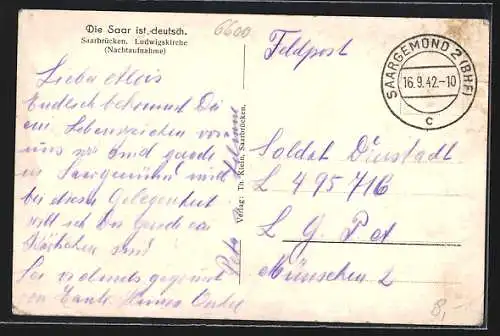 Die Saar ist deutsch.
Saarbrücken. Ludwigskirche
(Nachtaufnahme)
6600
Feldpost
SAARGEMÜND 2 (BHF)
16.9.42.-10
c
Lieber Alois
Endlich bekommst Du
ein Lebenszeichen von
uns wir sind gerade
in Saargemünd und
bei dieser Gelegenheit
will ich Dir gerade ein
Kärtchen
Sei vielmals gegrüsst
von Tante Onkel
Verlag: Th. Klein, Saarbrücken.
Soldat Dienstadt
L 49571 b
L G P A
München 2
8,-